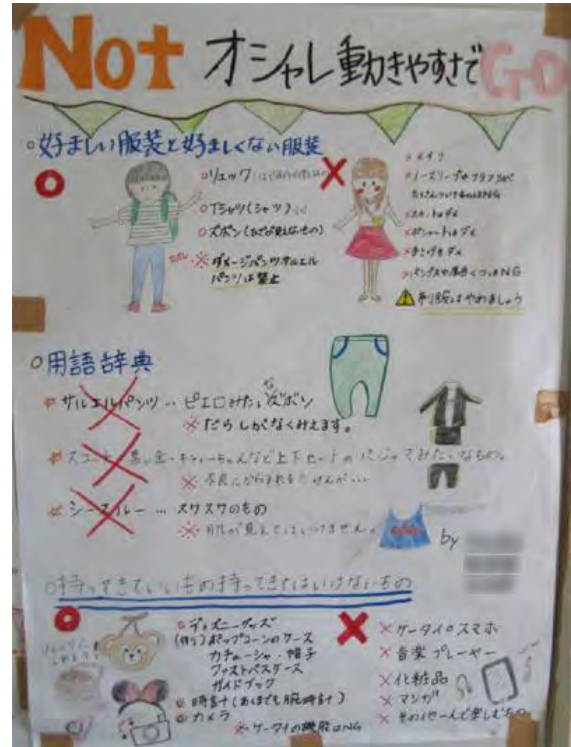 Not オシャレ 動きやすさで GO
○好ましい服装と好ましくない服装
○リュック
○Tシャツ(シャツ)
○ズボン(ひざが見えないもの)
※ダメージパンツ サルエル
パンツは禁止
×メイク
×ノースリーブやフリフリが
たくさんついてるのはNG
×スカートはダメ
×ポシェットはダメ
×手さげもダメ
×パンプスや厚底くつはNG
⚠制服はやめましょう
○用語辞典
サルエルパンツ…ピエロみたいなズボン
※だらしがなくみえます。
キティーちゃんなど上下セットのパジャマみたいなもの。
※不良にからまれる
シースルー…スケスケのもの
※肌が見えてはいけません。
by
○持ってきていいもの持ってきてはいけないもの
○ディズニーグッズ
(例)ポップコーンのケース
カチューシャ・帽子
ファストパスケース
ガイドブック
○時計(あくまでも腕時計)
○カメラ
※ケータイの機能はNG
×ケータイ○スマホ
×音楽プレーヤー
×化粧品
×マンガ
×その他一人で楽しむもの